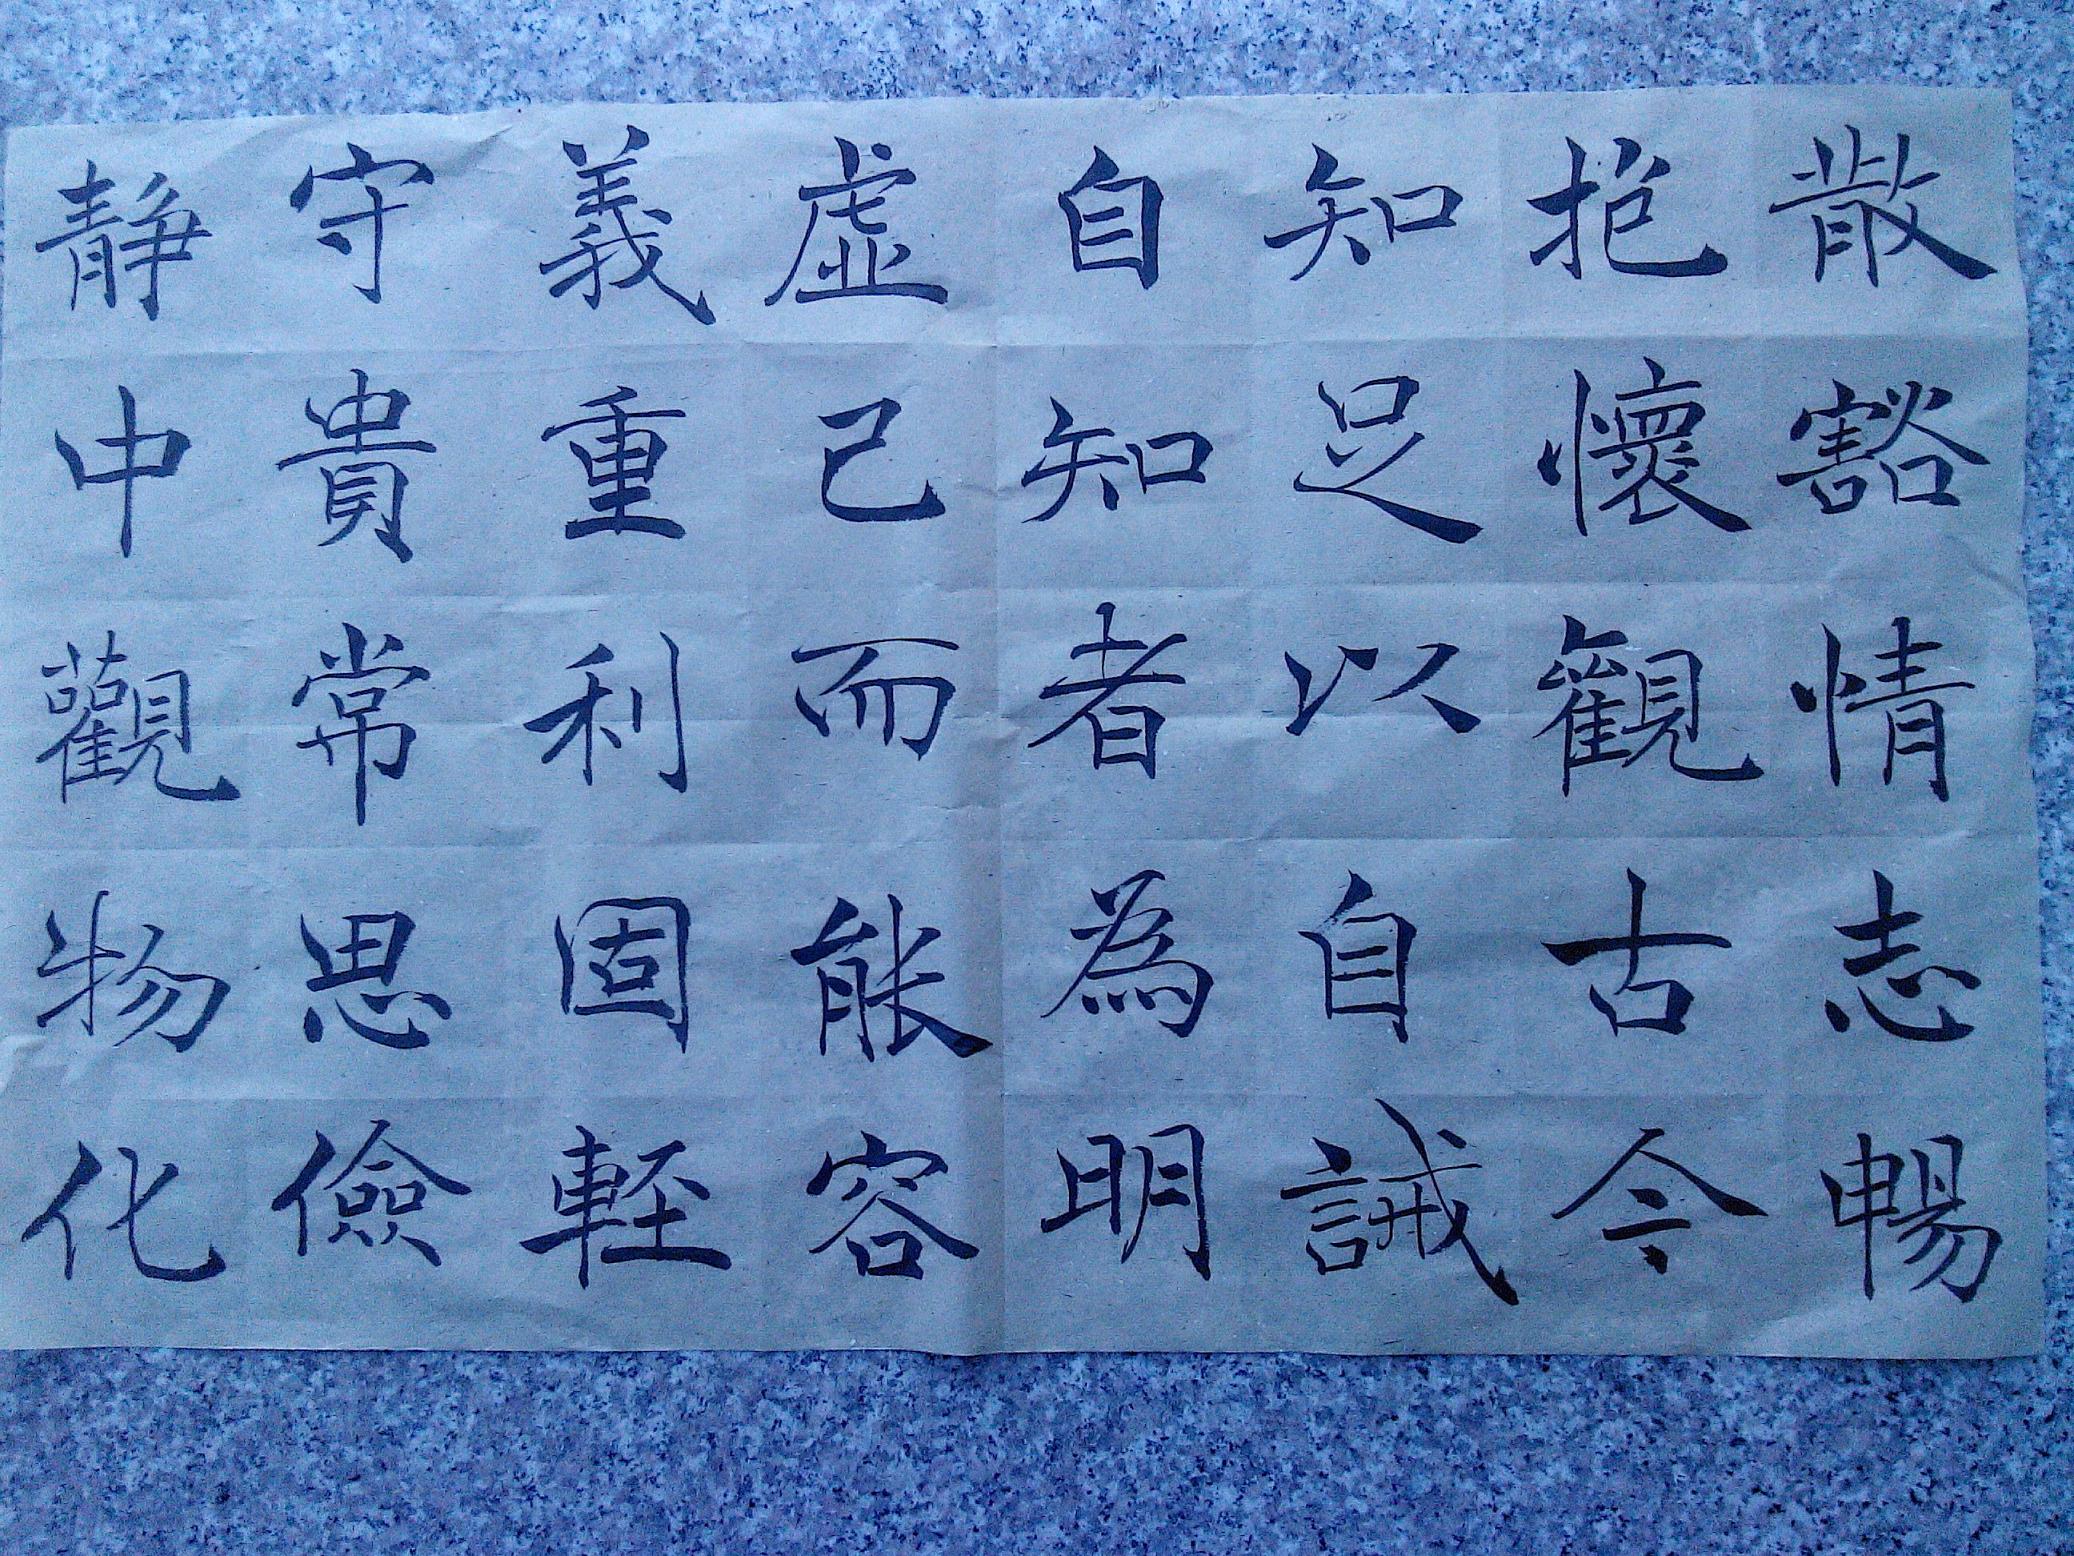 散豁情志暢
抱懷觀古今
知足以自誡
自知者為明
虚己而能容
義重利固軽
守貴常思儉
静中觀物化